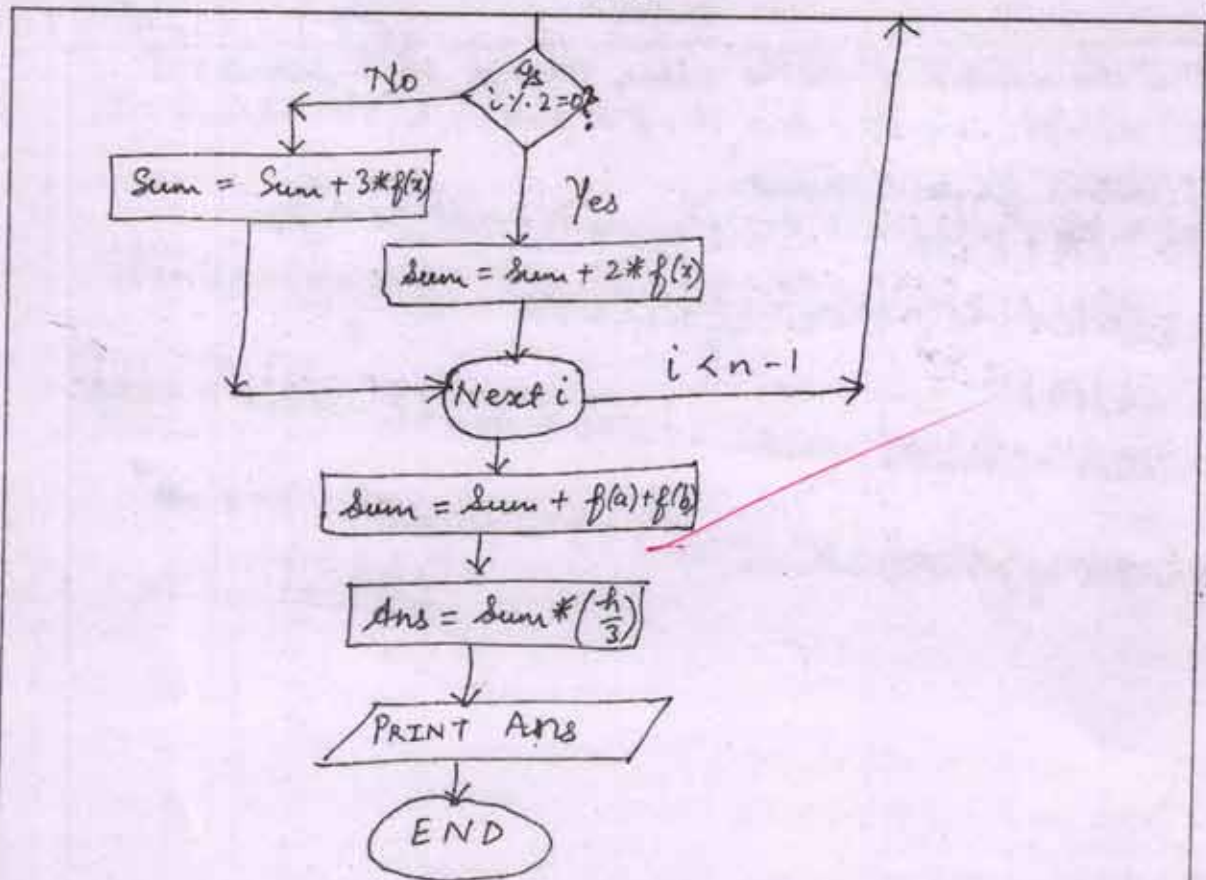 Is
i%2=0?
No
Sum = Sum + 3*f(x)
Yes
Sum = Sum + 2*f(x)
Next i
i < n-1
Sum = Sum + f(a)+f(b)
Ans = Sum*(h/3)
PRINT Ans
END